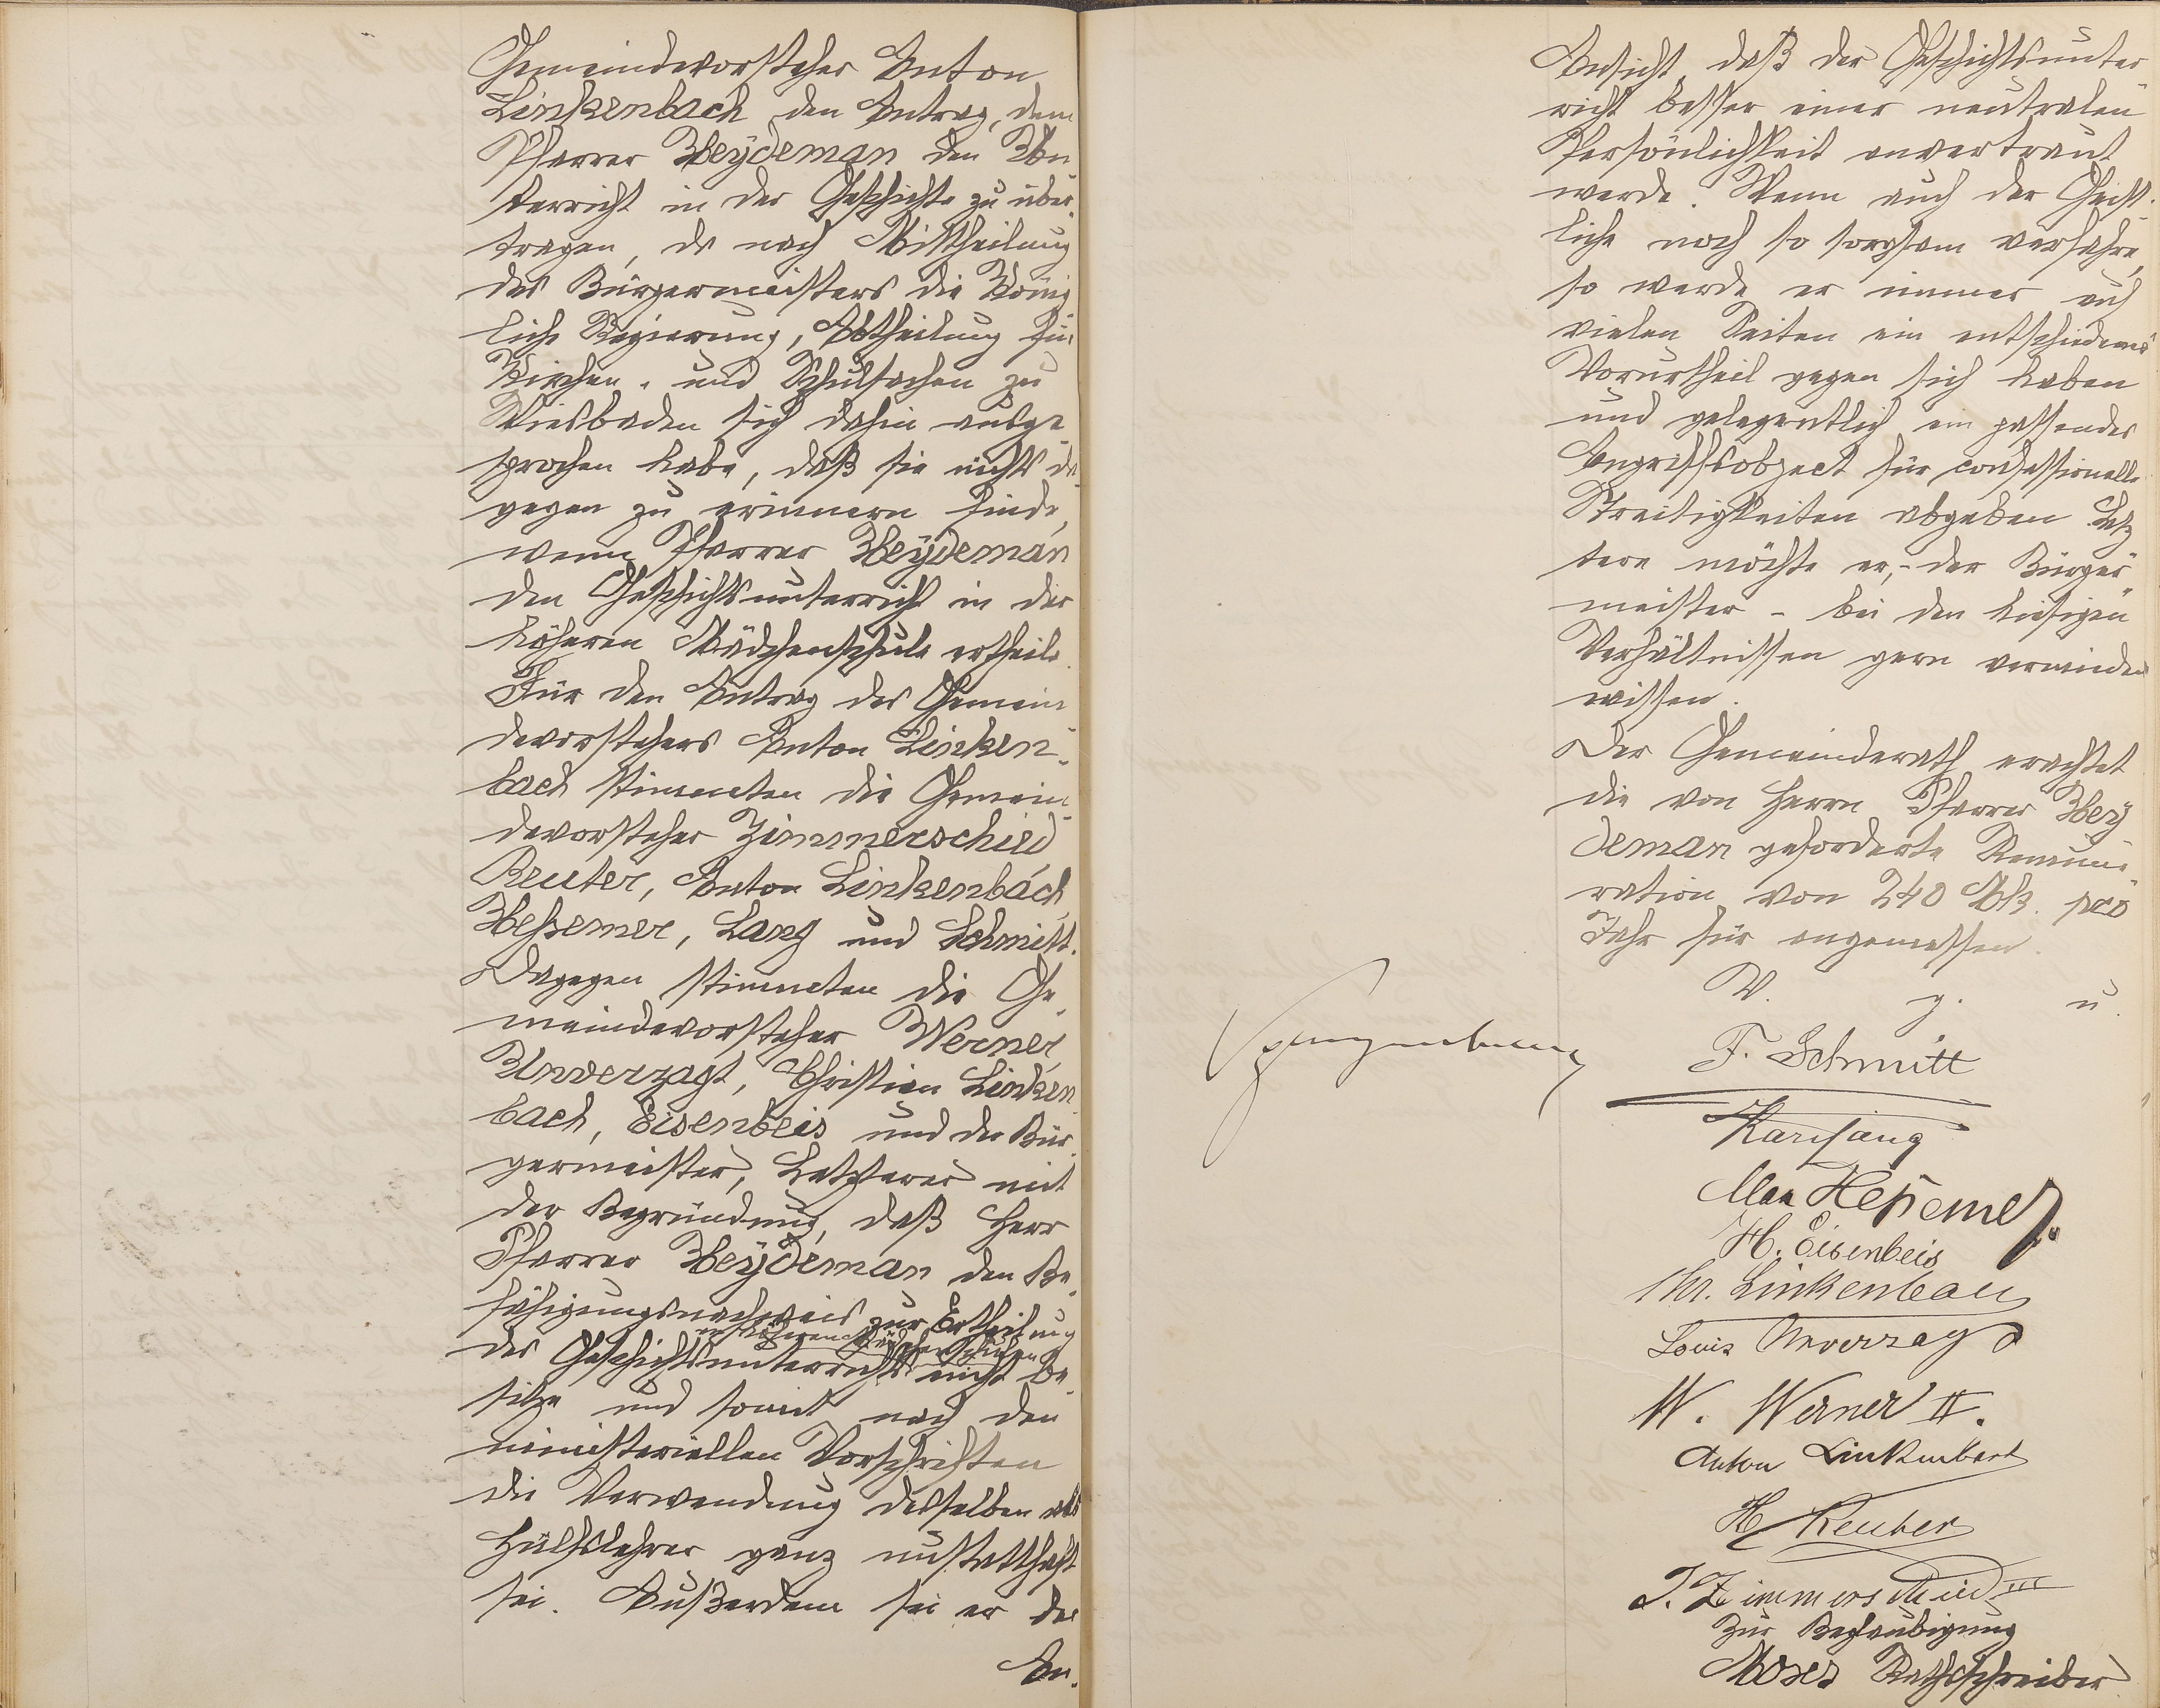 Gemeindevorsteher Anton
Linkenbach den Antrag, dem
Pfarrer Heydeman den Un
terricht in der Geschichte zu über¬
tragen, da nach Mittheilung
des Bürgermeisters die König
liche Regierung, Abtheilung für
Kirchen- und Schulsachen zu
Wiesbaden sich dahin ausge
sprochen habe, daß sie nichts da
gegen zu erinnern finde,
wenn Pfarrer Heydeman
den Geschichtsunterricht in der
höheren Mädchenschule ertheile.
Für den Antrag des Gemein
devorstehers Anton Linken¬
bach stimmten die Gemein
devorsteher Zimmerschied
Reuter, Anton Linkenbach
Heßemer, Lang und Schmitt.
Dagegen stimmten die Ge¬
meindevorsteher Werner
Unverzagt, Christian Linken
bach, Eisenbeis und der Bür
germeister, Letzterer mit
der Begründung, daß Herr
Pfarrer Heydeman den Be
fähigungsnachweis zur Ertheilung
in höheren Mädchenschulen
des Geschichtsunterrichts nicht be
sitze und somit nach den
ministeriellen Vorschriften
die Verwendung desselben als
Hülfslehrer ganz unstatthaft
sei. Außerdem sei er der
An¬
Ansicht, daß der Geschichtsunter
richt besser einer neutralen
Persönlichkeit anvertraut
werde. Wenn auch der Geist¬
liche noch so sorgsam verfahre,
so werde er immer auf
vielen Seiten ein entschiedenes
Vorurtheil gegen sich haben
und gelegentlich ein passendes
Angriffsobject für confessionelle
Streitigkeiten abgeben. Letz
tere möchte er, - der Bürger
meister - bei den hiesigen
Verhältnissen gern vermieden
wissen.
Der Gemeinderath erachtet
die von Herrn Pfarrer Hey
deman geforderte Remune¬
ration von 240 Mk. pro
Jahr für angemessen.
V. g. u.
F. Schmitt
Max Heßemer
H. Eisenbeis
Chr. Linkenbach
Louis Unverzagt
W. Werner II.
Anton Linkenbach
H Reuter
J. Zimmerschied III
Zur Beglaubigung
Moses Rathschreiber